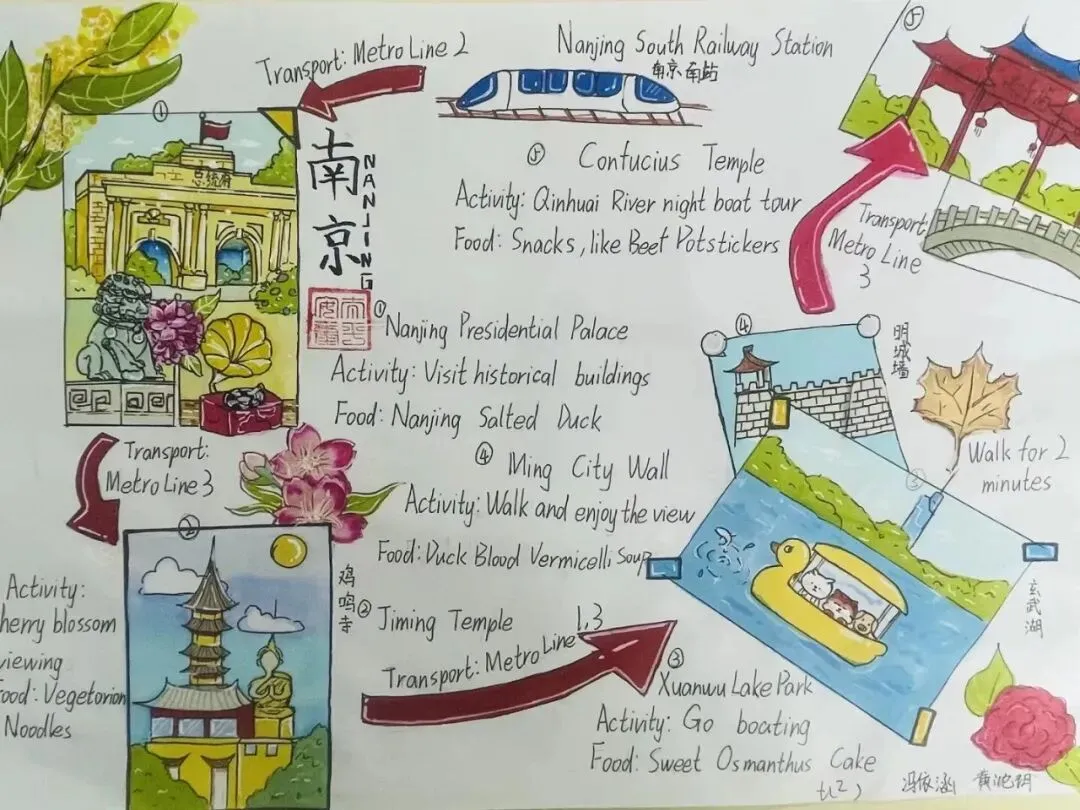 Transport: Metro Line 2
Nanjing South Railway Station
南京南站
①
总统府
南京
NANJING
⑤ Confucius Temple
Activity: Qinhuai River night boat tour
Food: Snacks, like Beef Potstickers
⑤
Transport:
Metro Line
3
① Nanjing Presidential Palace
Activity: Visit historical buildings
Food: Nanjing Salted Duck
④ Ming City Wall
Activity: Walk and enjoy the view
Food: Duck Blood Vermicelli Soup
④
明城墙
Walk for 2
minutes
③
玄武湖
Transport:
Metro Line 3
②
鸡鸣寺
Activity:
herry blossom
viewing
Food: Vegetarian
Noodles
② Jiming Temple
Transport: Metro Line 1.3
③
Xuanwu Lake Park
Activity: Go boating
Food: Sweet Osmanthus Cake
冯依涵